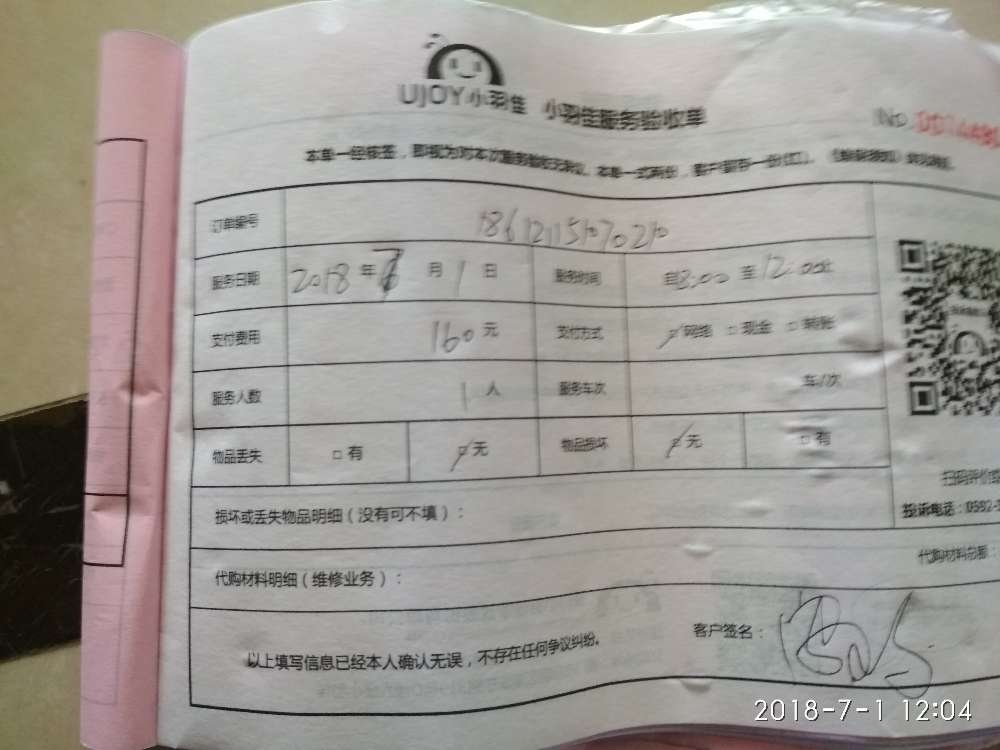 UJOY小羽佳 小羽佳服务验收单
No
本单一经核签，即视为对本次服务验收无异议。本单一式两份，客户留存一份(红)。
订单编号
服务日期 2018年7月1日 服务时间 自8:00至12:00止
支付费用 160元 支付方式 网络 □现金 □转账
服务人数 1人 服务车次 车/次
物品丢失 □有 无 物品损坏 无 □有
扫码评价
损坏或丢失物品明细（没有可不填）：
投诉电话：0592-
代购材料总额：
代购材料明细（维修业务）：
以上填写信息已经本人确认无误，不存在任何争议纠纷。
客户签名：
2018-7-1 12:04